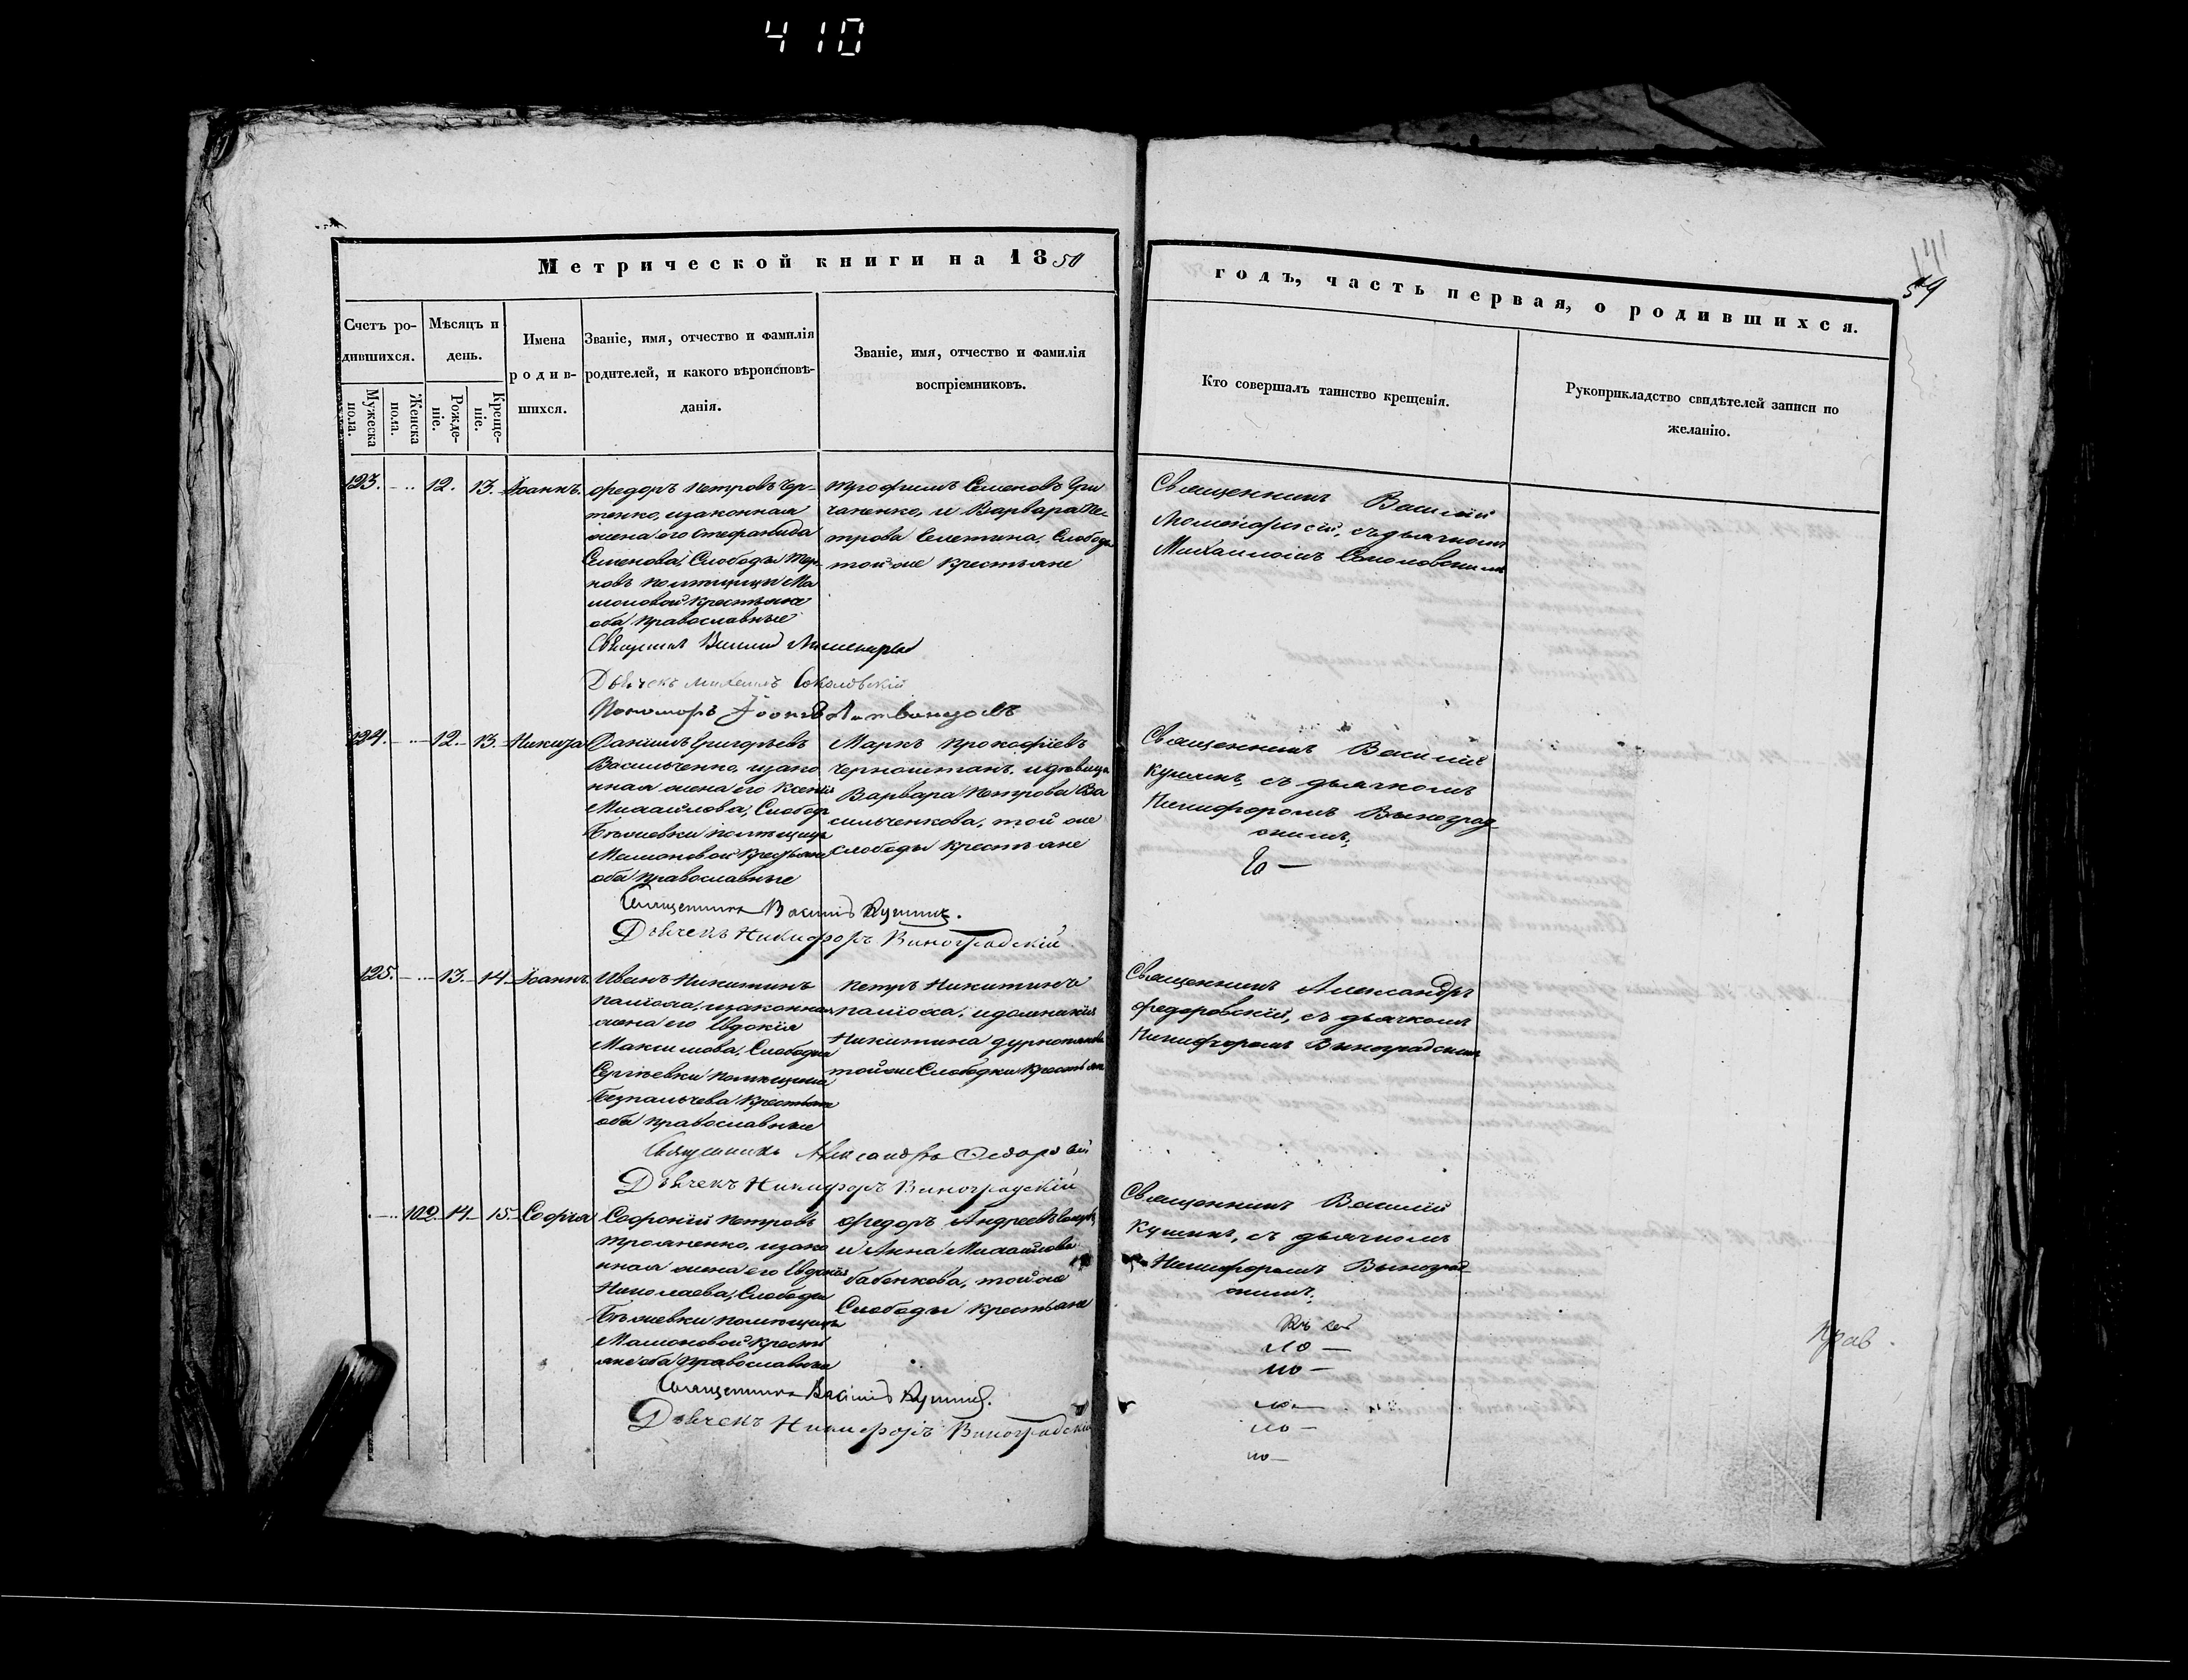 410
Метрической книги на 1850
годъ, часть первая, о родившихся.
59
Счетъ родившихся.
Мужеска пола.
Женска пола.
Мѣсяцъ и день.
Рожденіе.
Крещеніе.
Имена родившихся.
Званіе, имя, отчество и фамилія родителей, и какого вѣроисповѣданія.
Званіе, имя, отчество и фамилія воспріемниковъ.
Кто совершалъ таинство крещенія.
Рукоприкладство свидѣтелей записи по желанію.
123. 12. 13. Іоаннъ.
Федоръ Петровъ Чер-
тенко, изаконная
жена его Стефанида
Семенова, Слободы Тер-
новъ помѣщицы Ма
моновой крестьяне
оба православные
Трофимъ Семеновъ Гри
чаненко, и Варвара Пе-
трова Слободы
той же крестьяне
Священникъ Василій
съ дьячкомъ
Михаиломъ Соколовскимъ
Священникъ Василій
Дьячекъ Михаилъ Соколовскій
Пономарь
124. 12. 13. Никита
Даніилъ Григорьевъ
Васильченко, изако
нная жена его Ксенія
Михайлова, Слободы
Бѣжевки помѣщицы
Мамоновой крестьяне
оба православные
Маркъ Прокофіевъ
Черноштанъ, идѣвица
Варвара Петрова Ва
сильченкова, той же
слободы крестьяне
Священникъ Василій
Кушинъ, съ дьячкомъ
Никифоромъ Виноград-
скимъ
Священникъ Василій Кушинъ.
Дьячекъ Никифоръ Виноградскій
125. 13. 14. Іоаннъ.
Иванъ Никитинъ
изаконная
жена его Евдокія
Максимова, Слободки
Сергѣевки помѣщика
Безпальчева крестьяне
оба православные
Петръ Никитинъ
Никитина
той же Слободки крестьяне
Священникъ Александръ
Федоровскій, съ дьячкомъ
Никифоромъ Виноградскимъ
Священникъ Александръ Федоровскій
Дьячекъ Никифоръ Виноградскій
102. 14. 15. Софія
Софроній Петровъ
Трояненко, изако
нная жена его Евдокія
Николаева, Слободы
Бѣжевки помѣщицы
Мамоновой кресть
яне оба православные
Федоръ Андреевъ
и Анна Михайлова
Бабенкова, той же
Слободы крестьяне
Священникъ Василій
Кушинъ, съ дьячкомъ
Никифоромъ Виноград-
скимъ
Священникъ Василій Кушинъ.
Дьячекъ Никифоръ Виноградскій